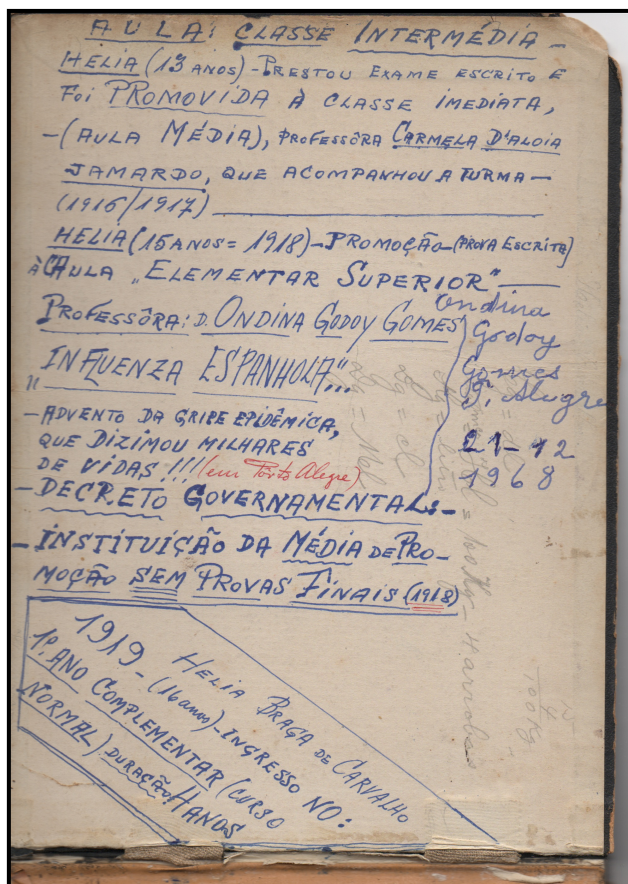 AULA: CLASSE INTERMÉDIA -
HELIA (13 ANOS) - PRESTOU EXAME ESCRITO E
FOI PROMOVIDA À CLASSE IMEDIATA,
- (AULA MÉDIA), PROFESSÔRA CARMELA D'ALOIA
JAMARDO, QUE ACOMPANHOU A TURMA -
(1916/1917)
HELIA (15 ANOS = 1918) - PROMOÇÃO - (PROVA ESCRITA)
À AULA „ELEMENTAR SUPERIOR" -
PROFESSÔRA: D. ONDINA GODOY GOMES
Ondina
Godoy
Gomes
P. Alegre
21-12
1968
„INFLUENZA ESPANHOLA"...
- ADVENTO DA GRIPE EPIDÊMICA,
QUE DIZIMOU MILHARES
DE VIDAS!!! (em Pôrto Alegre)
- DECRETO GOVERNAMENTAL: -
- INSTITUIÇÃO DA MÉDIA DE PRO-
MOÇÃO SEM PROVAS FINAIS (1918)
1919 - HELIA BRAGA DE CARVALHO
(16 anos) - INGRESSO NO:
1º ANO COMPLEMENTAR (CURSO
NORMAL) DURAÇÃO 4 ANOS
100 Kg